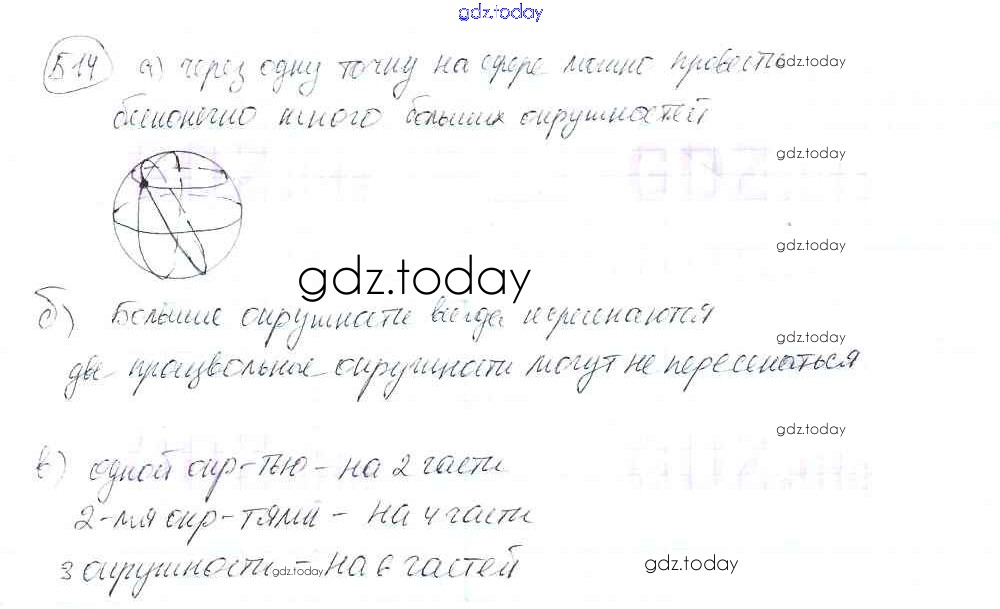 gdz.today
514 а) через одну точку на сфере можно провести
gdz.today
бесконечно много больших окружностей
gdz.today
gdz.today
gdz.today
б) Большие окружности всегда пересекаются
gdz.today
две произвольные окружности могут не пересекаться
gdz.today
в) одной окр-тью - на 2 части
2-мя окр-тями - на 4 части
3 окружности - на 6 частей
gdz.today
gdz.today